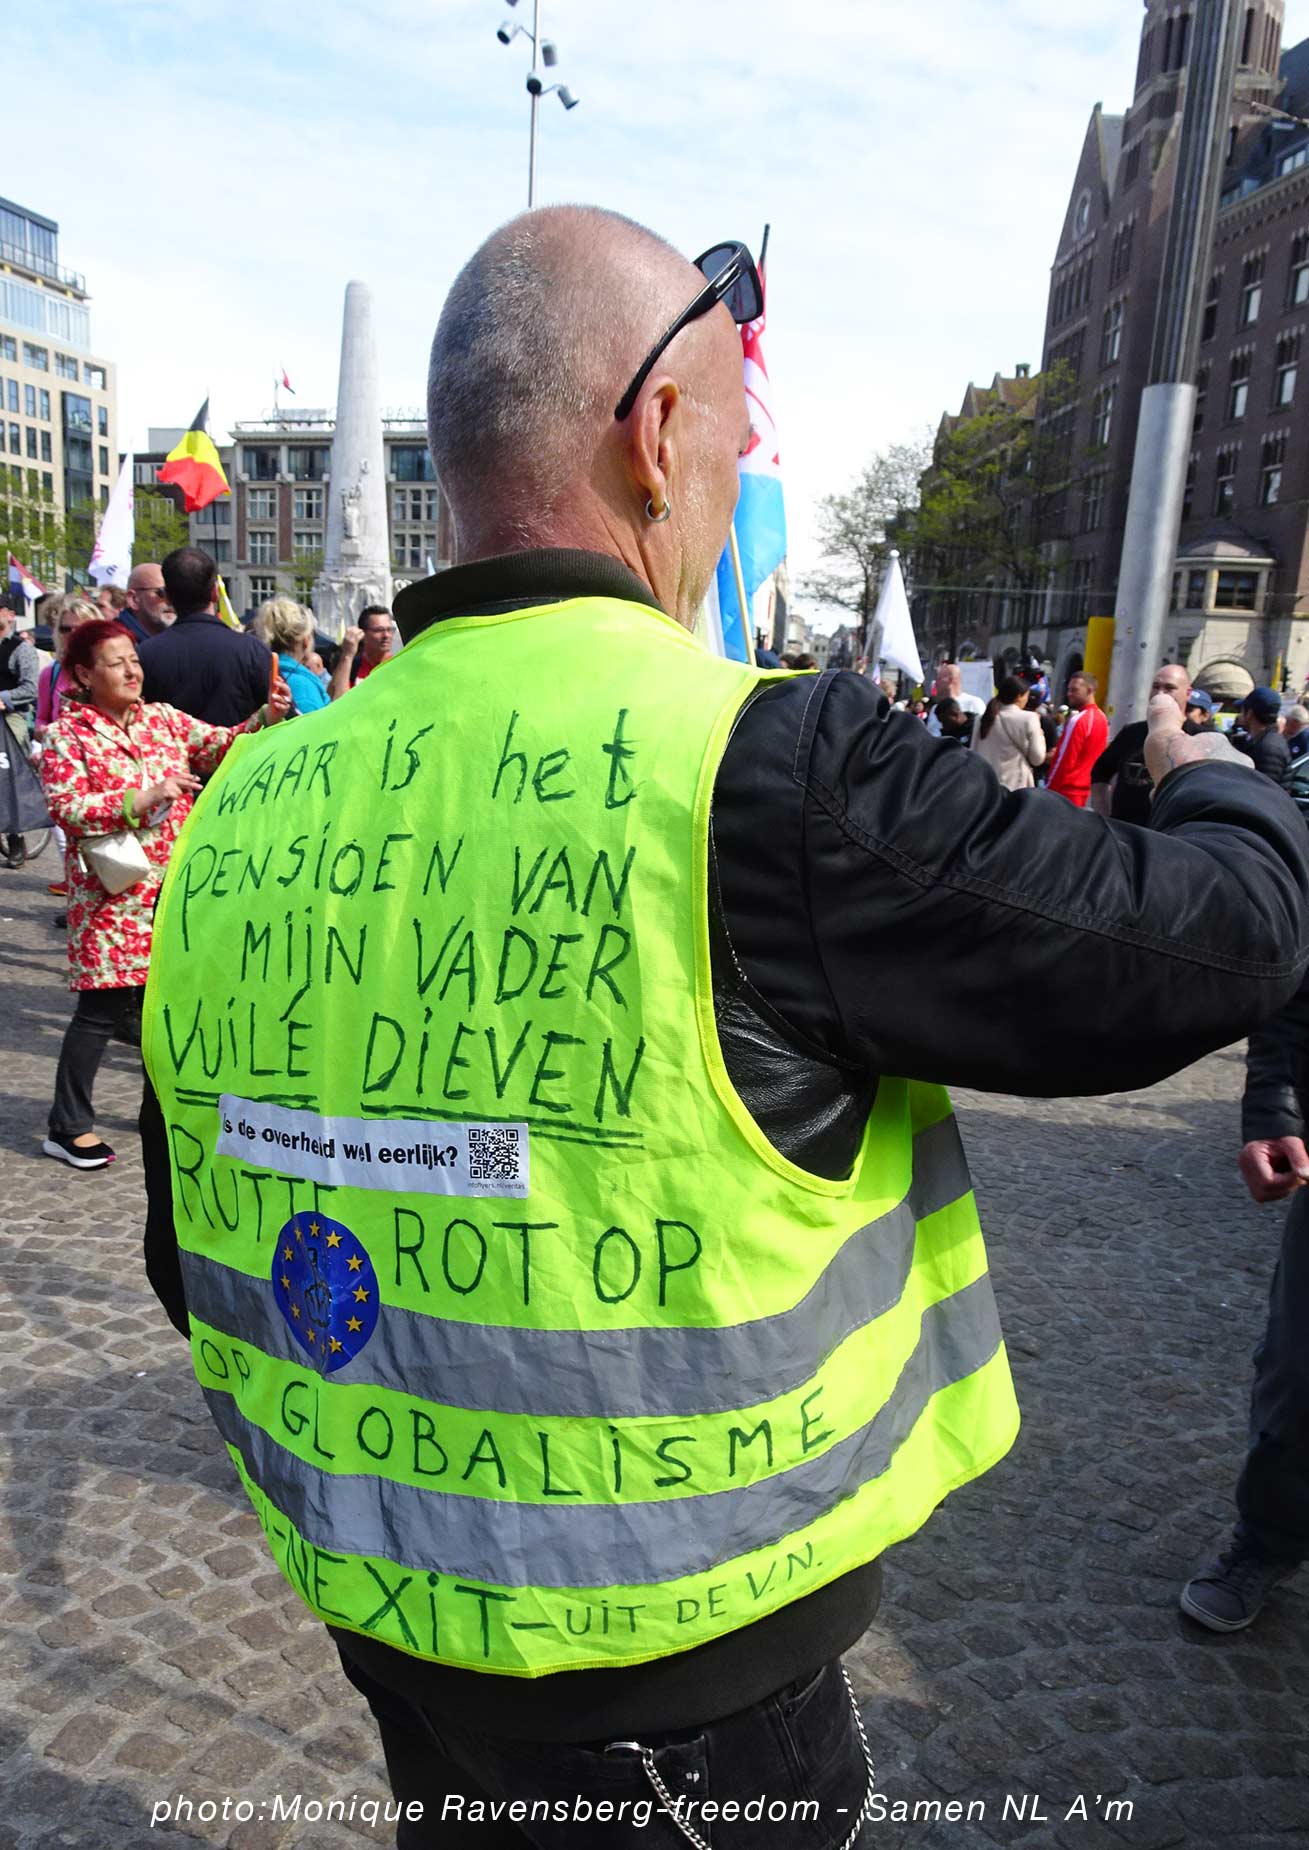 WAAR is het
PENSiOEN VAN
MijN VADER
VUiLÉ DiEVEN
is de overheid wel eerlijk?
RUTTE ROT OP
OP GLOBALiSME
NEXiT-UiT DE V.N.
photo:Monique Ravensberg-freedom - Samen NL A'm